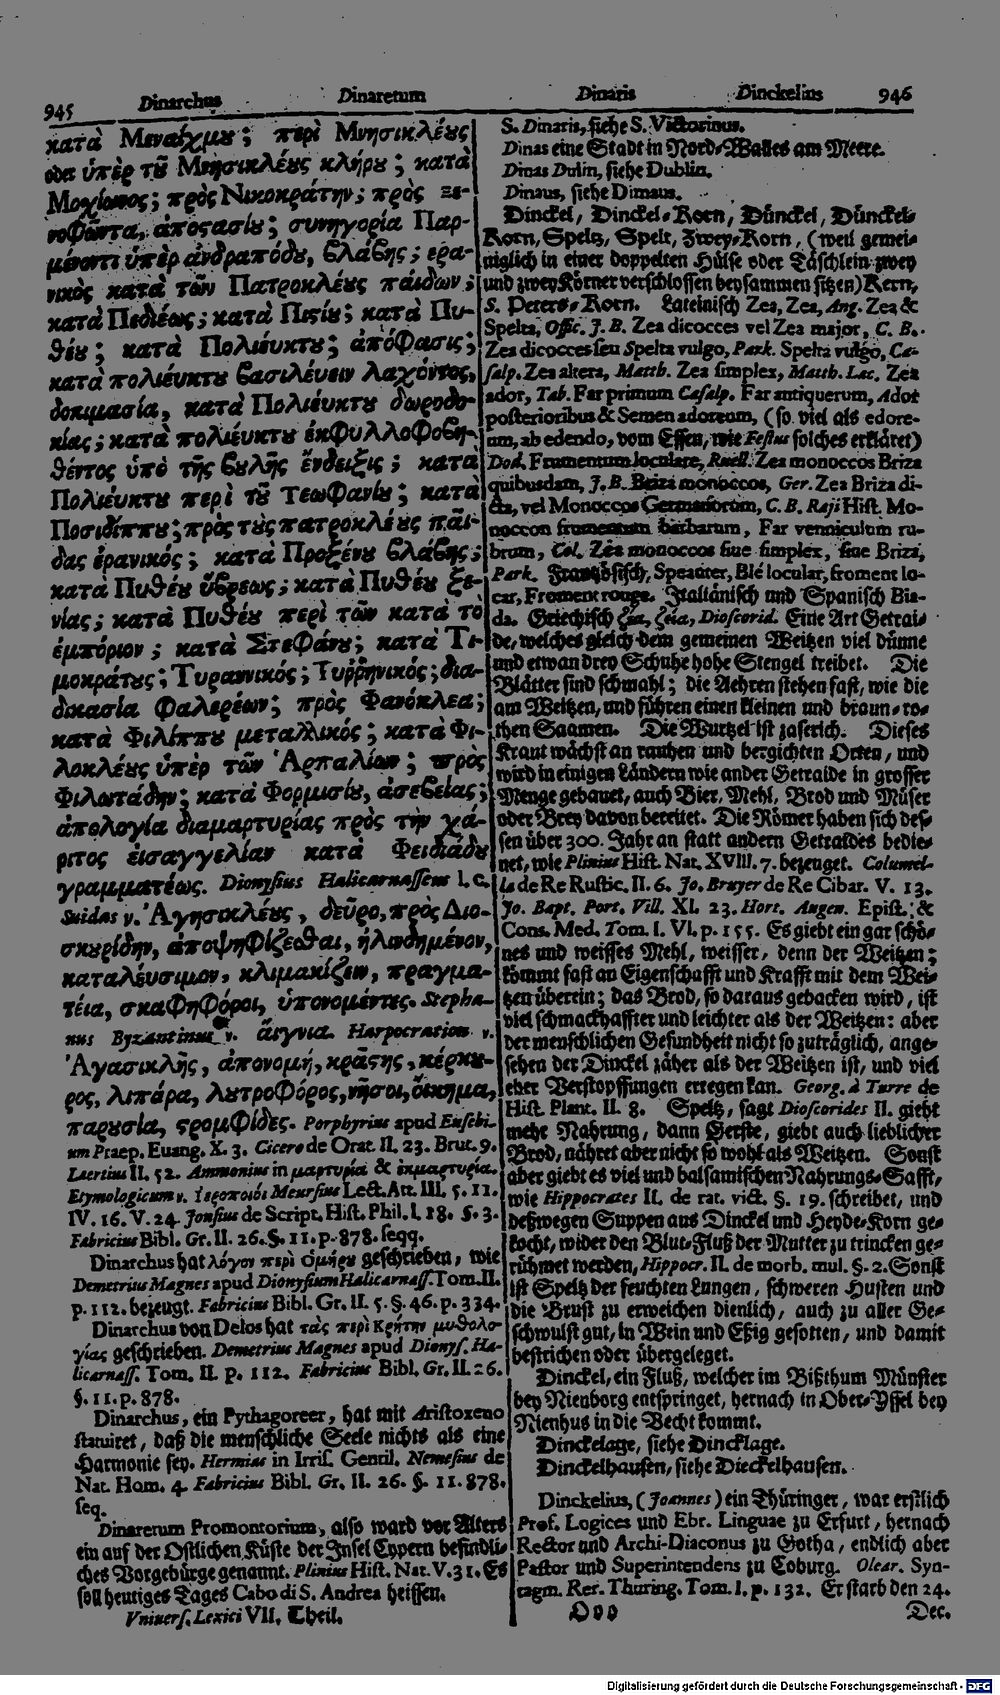 945 Dinarchus Dinaretum Dinaris Dinckelius 946
κατὰ Μεναίχμου; περὶ Μνησικλέους
ὑπὲρ τοῦ Μνησικλέους κλήρου; κατὰ
Μοχίωνος; πρὸς Νικοκράτην; πρὸς Ξε-
νοφῶντα, ἀποστασίου; συνηγορία Παρ-
μένοντι ὑπὲρ ἀνδραπόδου, βλάβης; ἐρα-
νικὸς κατὰ τῶν Πατροκλέους παίδων;
κατὰ Πεδιέως; κατὰ Πιστίου; κατὰ Πυ-
θέου; κατὰ Πολιέυκτου; ἀπόφασις;
κατὰ πολιέυκτου βασιλέυειν λαχόντος,
δοκιμασία, κατὰ Πολιέυκτου δωροδο-
κίας; κατὰ πολιέυκτου ἐκφυλλοφορη-
θέντος ὑπὸ τῆς βουλῆς ἔνδειξις; κατὰ
Πολιέυκτου περὶ τοῦ Τεωφανίου; κατὰ
Ποσιδίππου; πρὸς τοὺς πατροκλέους παῖ-
δας ἐρανικός; κατὰ Προξένου βλάβης;
κατὰ Πυθέου ὕβρεως; κατὰ Πυθέου ξε-
νίας; κατὰ Πυθέου περὶ τῶν κατὰ τὸ
ἐμπόριον; κατὰ Στεφάνου; κατὰ Τι-
μοκράτους; Τυραννικός; Τυῤῥηνικός; δια-
δικασία Φαλερέων; πρὸς Φανόκλεα;
κατὰ Φιλίππου μεταλλικός; κατὰ Φι-
λοκλέους ὑπὲρ τῶν Ἁρπαλίων; πρὸς
Φιλωτάδην; κατὰ Φορμισίου, ἀσεβείας;
ἀπολογία διαμαρτυρίας πρὸς τὴν χά-
ριτος εἰσαγγελίαν κατὰ Φειδιάδου
γραμματέως. Dionysius Halicarnasseus l. c.
Suidas v. Ἀγησικλέους, δεῦρο, πρὸς Διο-
σκυρίδην, ἀποψηφίζεσθαι, ἠλινδημένον,
καταλέυσιμον, κλιμακίζειν, πραγμα-
τέια, σκαφηφόροι, ὑπονομέντες. Stepha-
nus Byzantinus v. ἄιγνια. Harpocration v.
Ἀγασικλῆς, ἀπονομή, κρατης, κέρκυ-
ρος, λιπάρα, λουτροφόρος, νῆσοι, ὄικημα,
παρουσία, στρομφίδες. Porphyrius apud Eusebi-
um Praep. Euang. X. 3. Cicero de Orat. II. 23. Brut. 9.
Laertius II. 52. Ammonius in μαρτυρία & ἐκμαρτυρία.
Etymologicum v. Ἱεροποιόι Meursius Lect. Att. III. 5. 11.
IV. 16. V. 24. Jonsius de Script. Hist. Phil. I. 18. §. 3.
Fabricius Bibl. Gr. II. 26. §. 11. p. 878. seqq.
Dinarchus hat λόγον περὶ Ὁμήρου geschrieben, wie
Demetrius Magnes apud Dionysium Halicarnass. Tom. II.
p. 112. bezeugt. Fabricius Bibl. Gr. II. 5. §. 46. p. 334.
Dinarchus von Delos hat τὰς περὶ Κρήτην μυθολο-
γίας geschrieben. Demetrius Magnes apud Dionys. Ha-
licarnass. Tom. II. p. 112. Fabricius Bibl. Gr. II. 26.
§. 11. p. 878.
Dinarchus, ein Pythagoreer, hat mit Aristoxeno
statuiret, daß die menschliche Seele nichts als eine
Harmonie sey. Hermias in Irris. Gentil. Nemesius de
Nat. Hom. 4. Fabricius Bibl. Gr. II. 26. §. 11. 878.
seq.
Dinaretum Promontorium, also ward vor Alters
ein auf der Ostlichen Küste der Insel Cypern befindli-
ches Vorgebürge genannt. Plinius Hist. Nat. V. 31. Es
soll heutiges Tages Cabo di S. Andrea heissen.
Univers. Lexici VII. Theil.
S. Dinaris, siehe S. Victorinus.
Dinas eine Stadt in Nord-Walles am Meere.
Dinas Dulin, siehe Dublin.
Dinaus, siehe Dimaus.
Dinckel, Dinckel-Korn, Dünckel, Dünckel-
Korn, Speltz, Spelt, Zwey-Korn, (weil gemei-
niglich in einer doppelten Hülse oder Täschlein zwey
und zwey Körner verschlossen beysammen sitzen) Kern,
S. Peters-Korn. Lateinisch Zea, Zea, Ang. Zea &
Spelta, Offic. J. B. Zea dicocces vel Zea major, C. B.
Zea dicocces seu Spelta vulgo, Park. Spelta vulgo, Cae-
salp. Zea altera, Matth. Zea simplex, Matth. Lac. Zea
ador, Tab. Far primum Caesalp. Far antiquerum, Adot
posterioribus & Semen adoreum, (so viel als edore-
um, ab edendo, vom Essen, wie Festus solches erkläret)
Dod. Frumentum loculare, Ruell. Zea monoccos Briza
quibusdam, J. B. Briza monoccos, Ger. Zea Briza di-
cta, vel Monoccos Germanorum, C. B. Raji Hist. Mo-
noccon frumentum barbarum, Far venniculum ru-
brum, Col. Zea monoccos siue simplex, siue Briza,
Park. Französisch, Speauter, Blé locular, froment lo-
car, Froment rouge. Italiänisch und Spanisch Bia-
da. Griechisch ζία, ζέια, Dioscorid. Eine Art Getrai-
de, welches gleich dem gemeinen Weitzen viel dünne
und etwan drey Schuhe hohe Stengel treibet. Die
Blätter sind schmahl; die Aehren stehen fast, wie die
am Weitzen, und führen einen kleinen und braun-ro-
then Saamen. Die Wurtzel ist zaserich. Dieses
Kraut wächst an rauhen und bergichten Orten, und
wird in einigen Ländern wie ander Getraide in grosser
Menge gebauet, auch Bier, Mehl, Brod und Müser
oder Brey davon bereitet. Die Römer haben sich des-
sen über 300. Jahr an statt andern Getraides bedie-
net, wie Plinius Hist. Nat. XVIII. 7. bezeuget. Columel-
la de Re Rustic. II. 6. Jo. Bruyer de Re Cibar. V. 13.
Jo. Bapt. Port. Vill. XI. 23. Hort. Augen. Epist. &
Cons. Med. Tom. I. VI. p. 155. Es giebt ein gar schö-
nes und weisses Mehl, weisser, denn der Weitzen;
kommt fast an Eigenschafft und Krafft mit dem Wei-
tzen überein; das Brod, so daraus gebacken wird, ist
viel schmackhaffter und leichter als der Weitzen: aber
der menschlichen Gesundheit nicht so zuträglich, ange-
sehen der Dinckel zäher als der Weitzen ist, und viel
eher Verstopffungen erregen kan. Georg. à Turre de
Hist. Plant. II. 8. Speltz, sagt Dioscorides II. giebt
mehr Nahrung, dann Gerste, giebt auch lieblicher
Brod, nähret aber nicht so wohl als Weitzen. Sonst
aber giebt es viel und balsamischen Nahrungs-Safft,
wie Hippocrates II. de rat. vict. §. 19. schreibet, und
deßwegen Suppen aus Dinckel und Heyde-Korn ge-
kocht, wider den Blut-Fluß der Mutter zu trincken ge-
rühmet werden, Hippocr. II. de morb. mul. §. 2. Sonst
ist Speltz der feuchten Lungen, schweren Husten und
die Brust zu erweichen dienlich, auch zu aller Ge-
schwulst gut, in Wein und Eßig gesotten, und damit
bestrichen oder übergeleget.
Dinckel, ein Fluß, welcher im Bißthum Münster
bey Nienborg entspringet, hernach in Ober-Yssel bey
Nienhus in die Vecht kommt.
Dinckelage, siehe Dincklage.
Dinckelhausen, siehe Dieckelhausen.
Dinckelius, (Joannes) ein Thüringer, war erstlich
Prof. Logices und Ebr. Linguae zu Erfurt, hernach
Rector und Archi-Diaconus zu Gotha, endlich aber
Pastor und Superintendens zu Coburg. Olear. Syn-
tagm. Rer. Thuring. Tom. I. p. 132. Er starb den 24.
Ooo Dec.
Digitalisierung gefördert durch die Deutsche Forschungsgemeinschaft - DFG